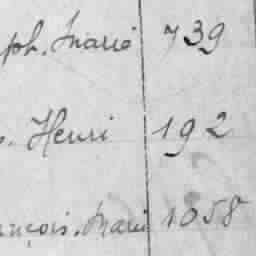 ph. Marie 739
s. Henri 192
ançois. Marie 1058